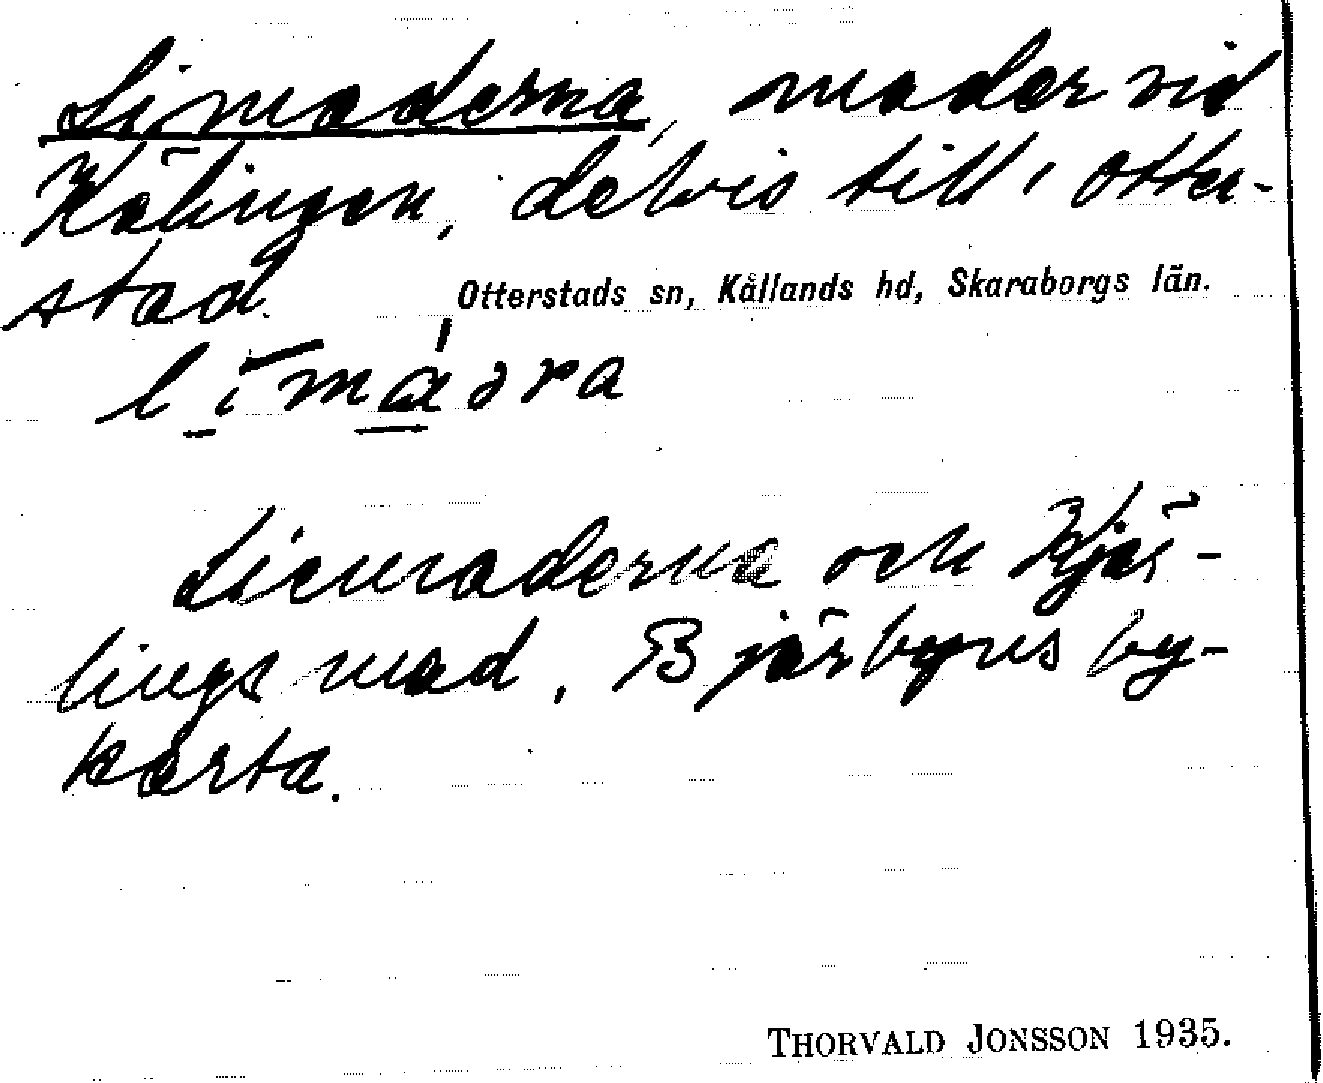 Limaderna, mader vid
Kälingen, delvis till Otter-
stad.
Otterstads sn, Kållands hd, Skaraborgs län.
l ī m a ə r a
Liemaderna och Kjär-
lings mad. Bjärbyns by-
karta.
THORVALD JONSSON 1935.